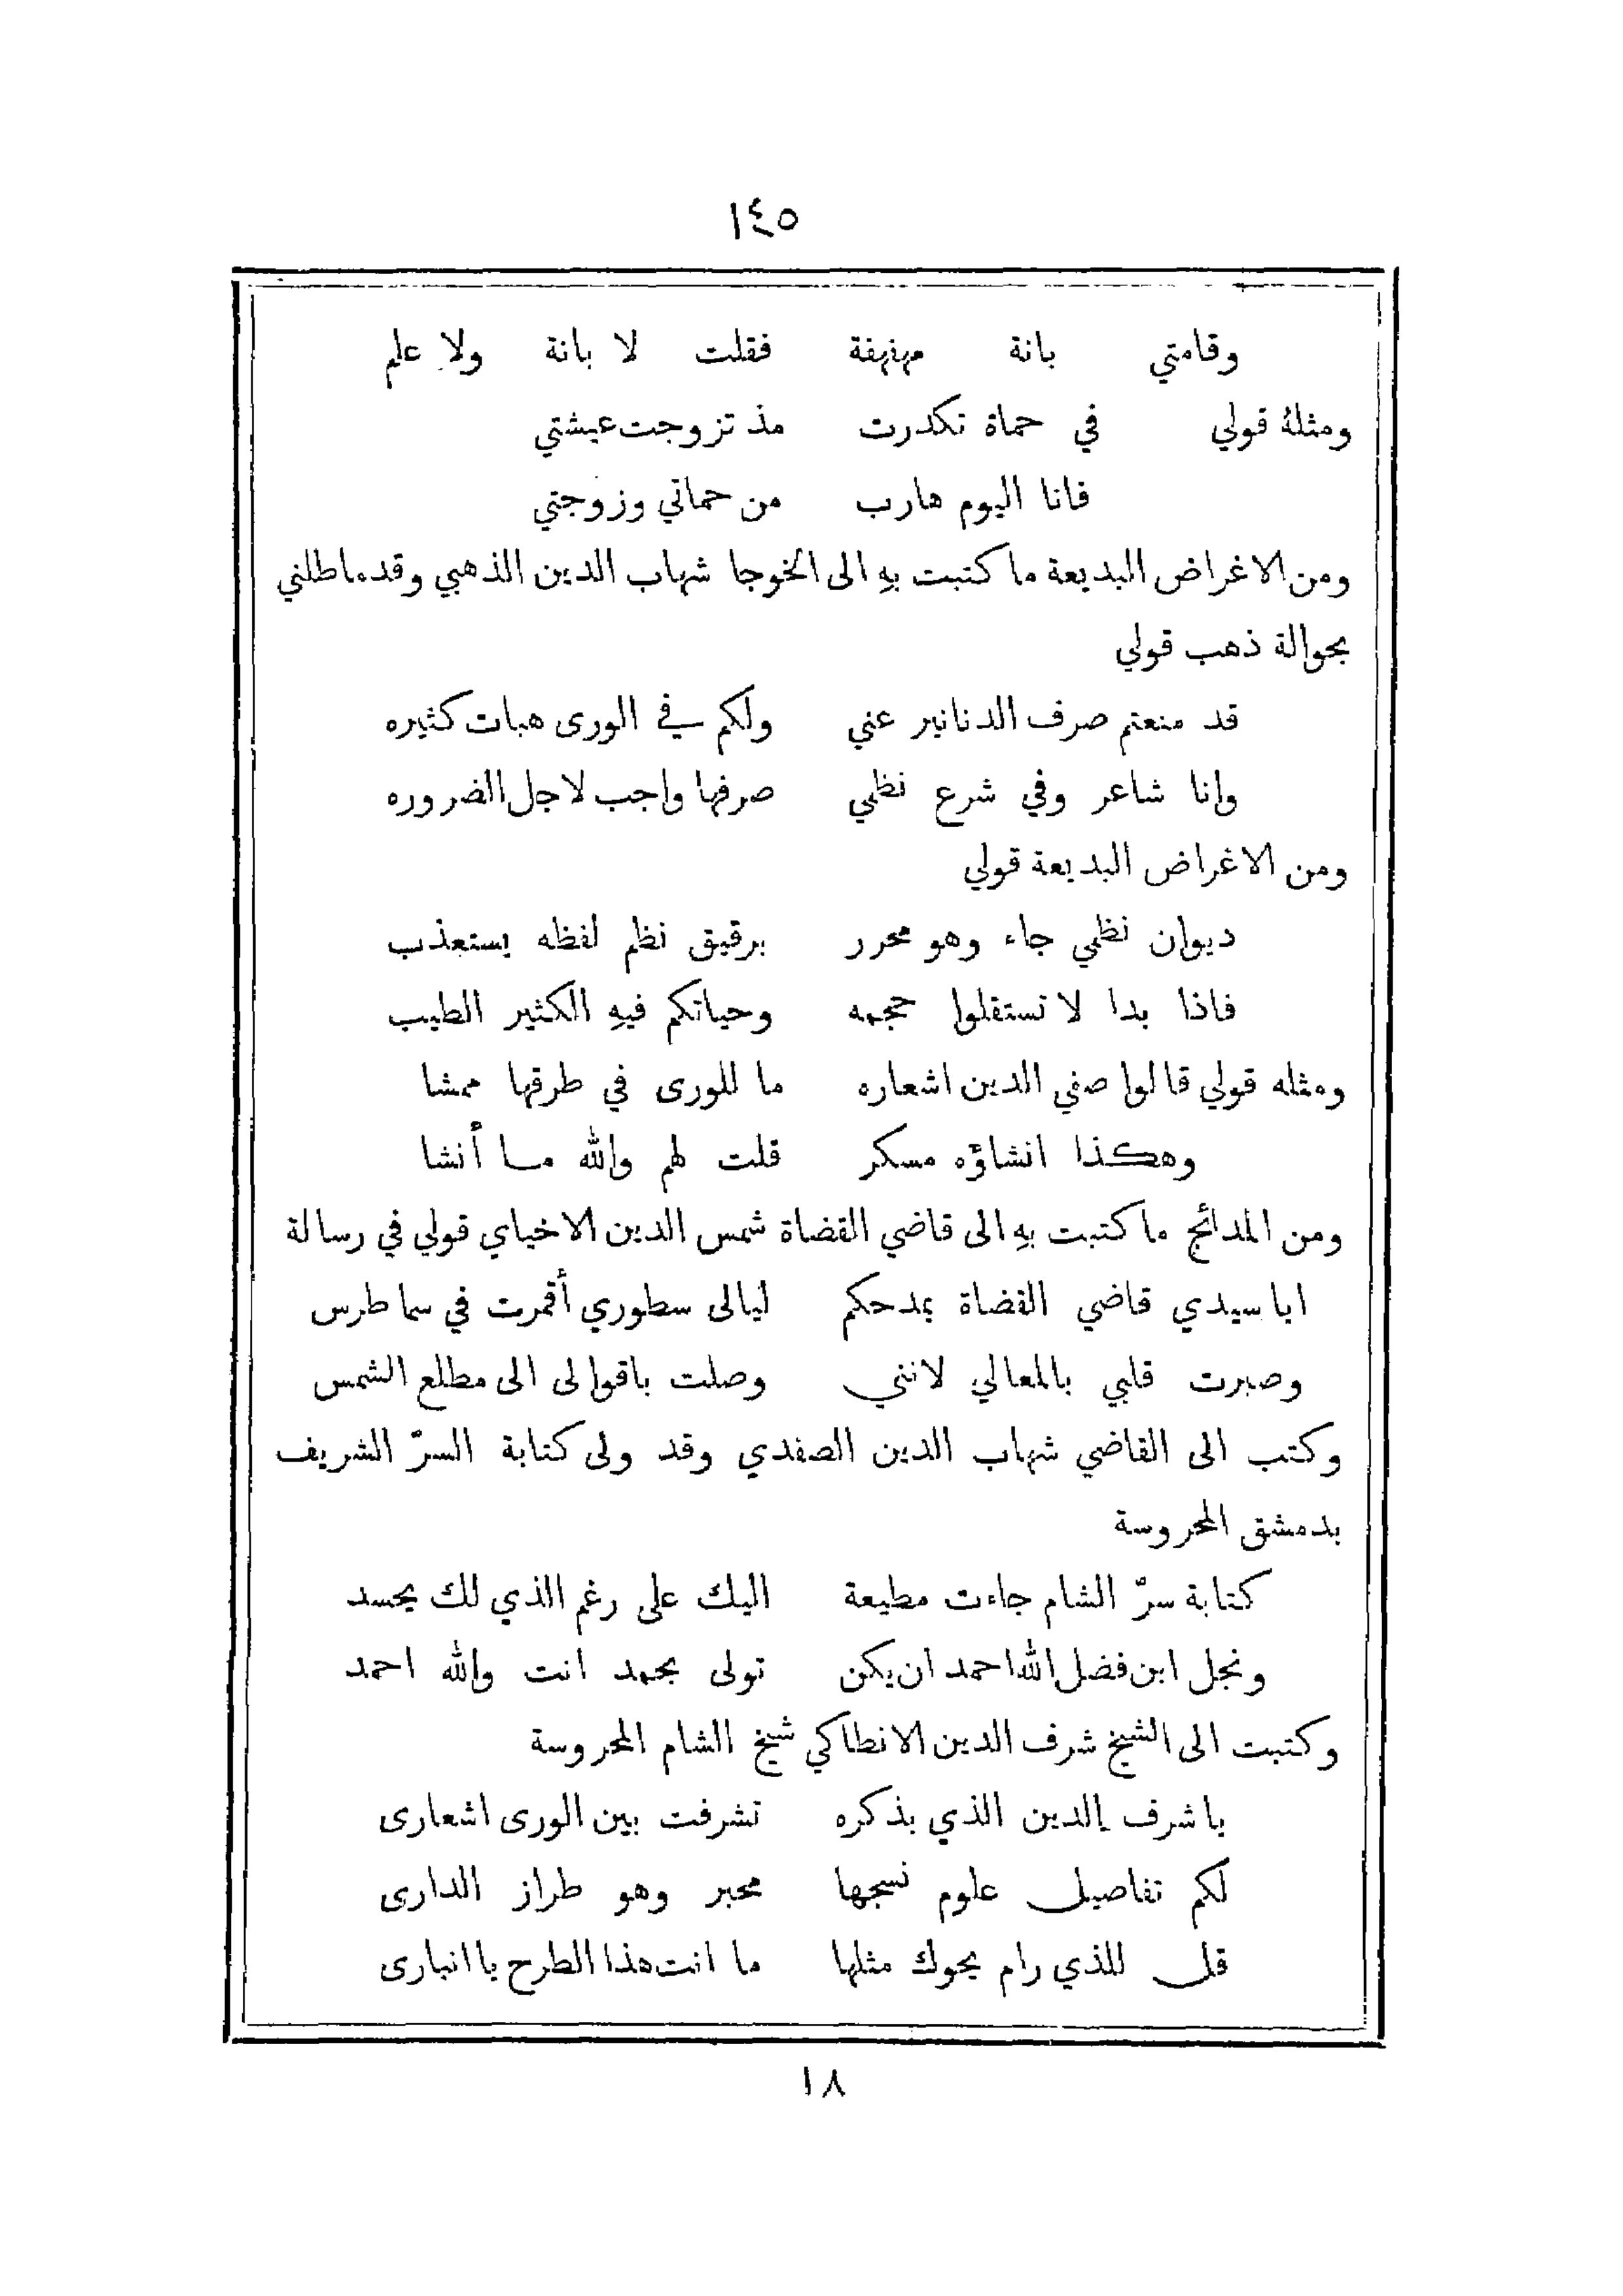 ١٤٥
وقامتي بانة مهفهفة فقلت لا بانة ولا علم
ومثلهُ قولي في حماة تكدرت مذ تزوجت عيشتي
فانا اليوم هارب من حماتي وزوجتي
ومن الاغراض البديعة ما كتبت بهِ الى الخوجا شهاب الدين الذهبي وقد ماطلني
بحوالة ذهب قولي
قد منعتم صرف الدنانير عني ولكم في الورى هبات كثيره
وانا شاعر وفي شرع نظمي صرفها واجب لاجل الضروره
ومن الاغراض البديعة قولي
ديوان نظمي جاء وهو محرر برقيق نظم لفظه يستعذب
فاذا بدا لا تستقلوا حجمه وحياتكم فيهِ الكثير الطيب
ومثله قولي قالوا صفي الدين اشعاره ما للورى في طرقها ممشا
وهكذا انشاؤه مسكر قلت لهم والله ما أنشا
ومن المدائح ما كتبت بهِ الى قاضي القضاة شمس الدين الاخياي قولي في رسالة
ايا سيدي قاضي القضاة بمدحكم ليالى سطوري أقمرت في سما طرس
وصبرت قلبي بالمعالي لانني وصلت باقوالى الى مطلع الشمس
وكتب الى القاضي شهاب الدين الصفدي وقد ولى كتابة السرّ الشريف
بدمشق المحروسة
كتابة سرّ الشام جاءت مطيعة اليك على رغم الذي لك يحسد
ونجل ابن فضل الله احمد ان يكن تولى بحمد انت والله احمد
وكتبت الى الشيخ شرف الدين الانطاكي شيخ الشام المحروسة
يا شرف الدين الذي بذكره تشرفت بين الورى اشعارى
لكم تفاصيل علوم نسجها محبر وهو طراز الدارى
قل للذي رام يحوك مثلها ما انت هذا الطرح يا انبارى
١٨